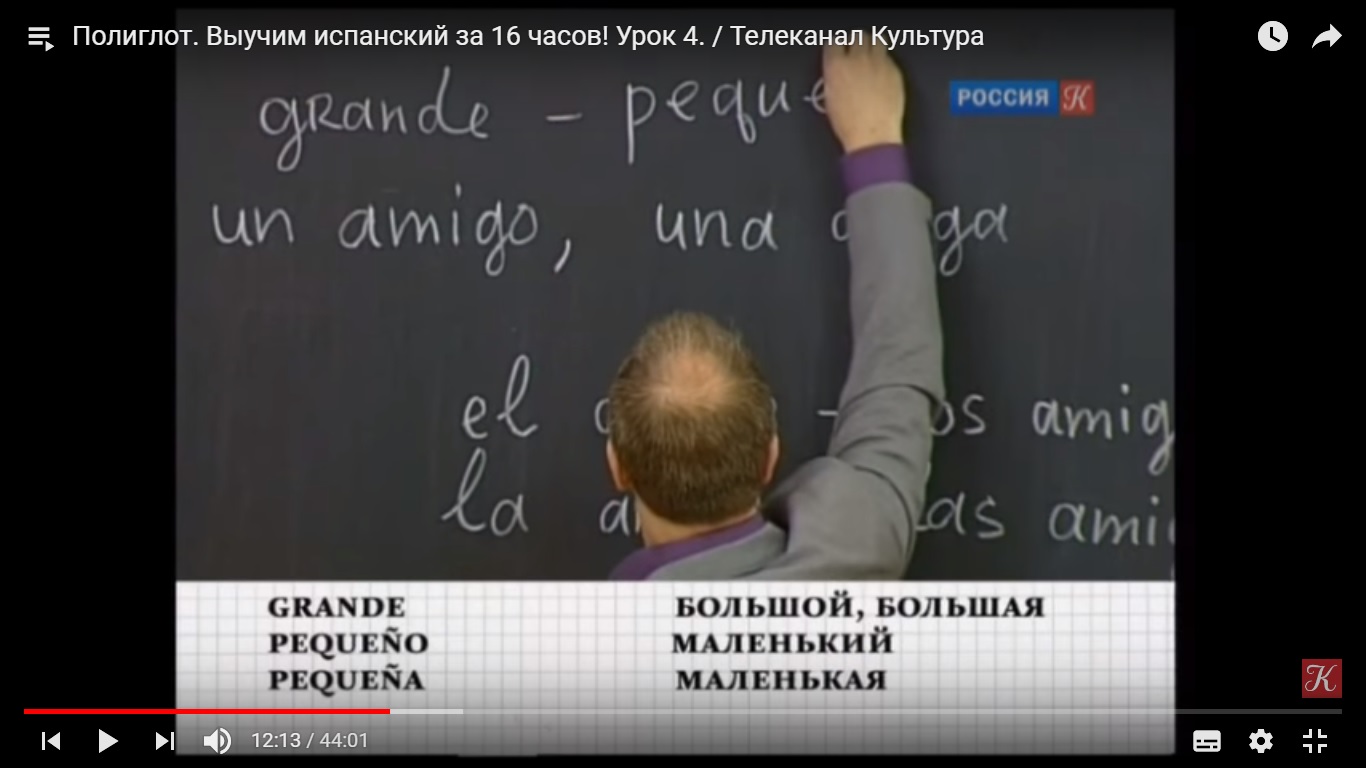 Полиглот. Выучим испанский за 16 часов! Урок 4. / Телеканал Культура
grande –
РОССИЯ К
un amigo, una
el – amig
la las ami
GRANDE БОЛЬШОЙ, БОЛЬШАЯ
PEQUEÑO МАЛЕНЬКИЙ
PEQUEÑA МАЛЕНЬКАЯ
К
12:13 / 44:01